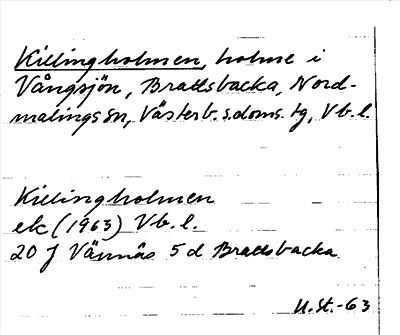 Killingholmen, holme i
Vångsjön, Brattsbacka, Nord-
malings sn, Västerb. s.doms. tg, Vb. l.
Killingholmen
ek (1963) Vb. l.
20 J Vännäs 5 d Brattsbacka
U. St. -63